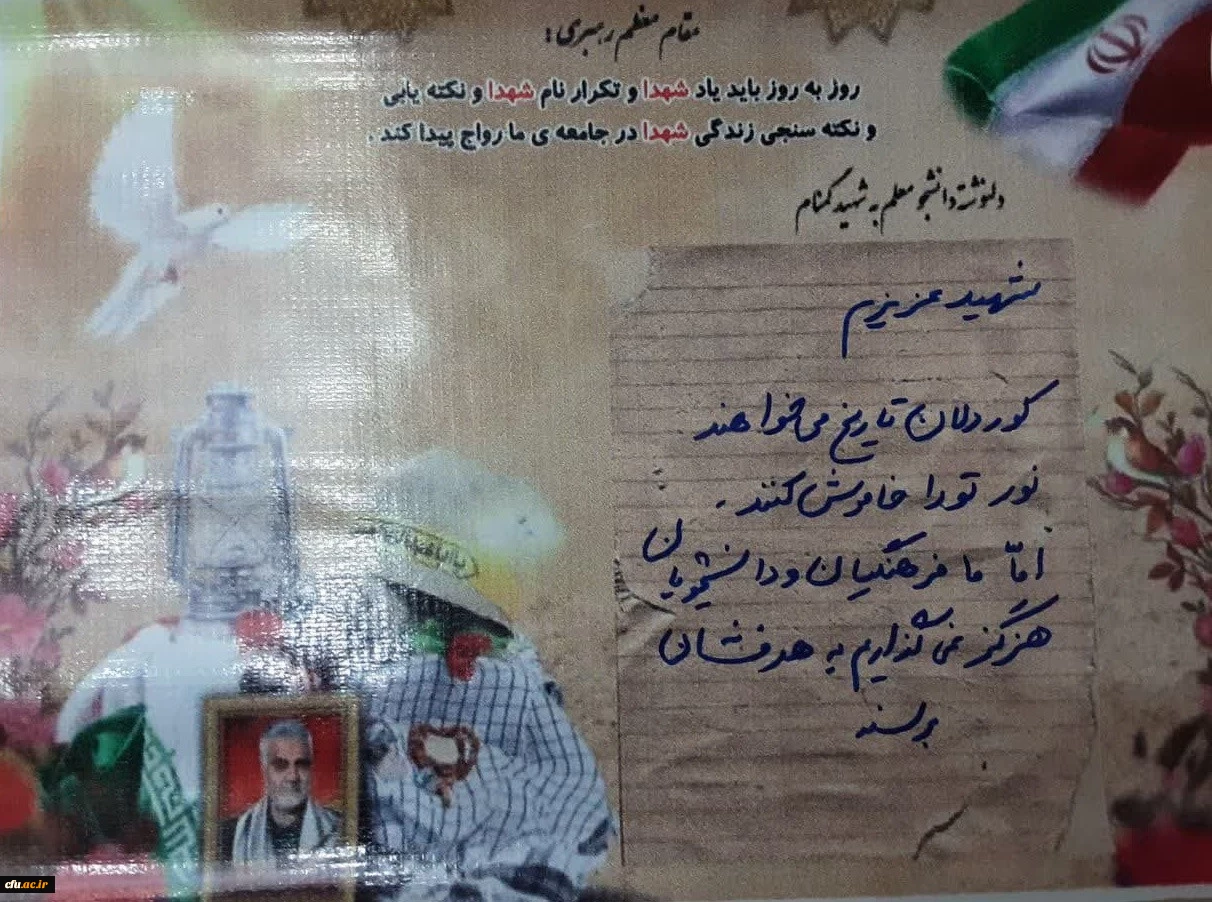 مقام معظم رهبری:
روز به روز باید یاد شهدا و تکرار نام شهدا و نکته یابی
و نکته سنجی زندگی شهدا در جامعه ی ما رواج پیدا کند.
دلنوشته دانشجو معلم به شهید گمنام
شهید عزیزم
کوردلان تاریخ می‌خواهند
نور تو را خاموش کنند.
امّا ما فرهنگیان و دانشجویان
هرگز نمی‌گذاریم به هدفشان
برسند
cfu.ac.ir